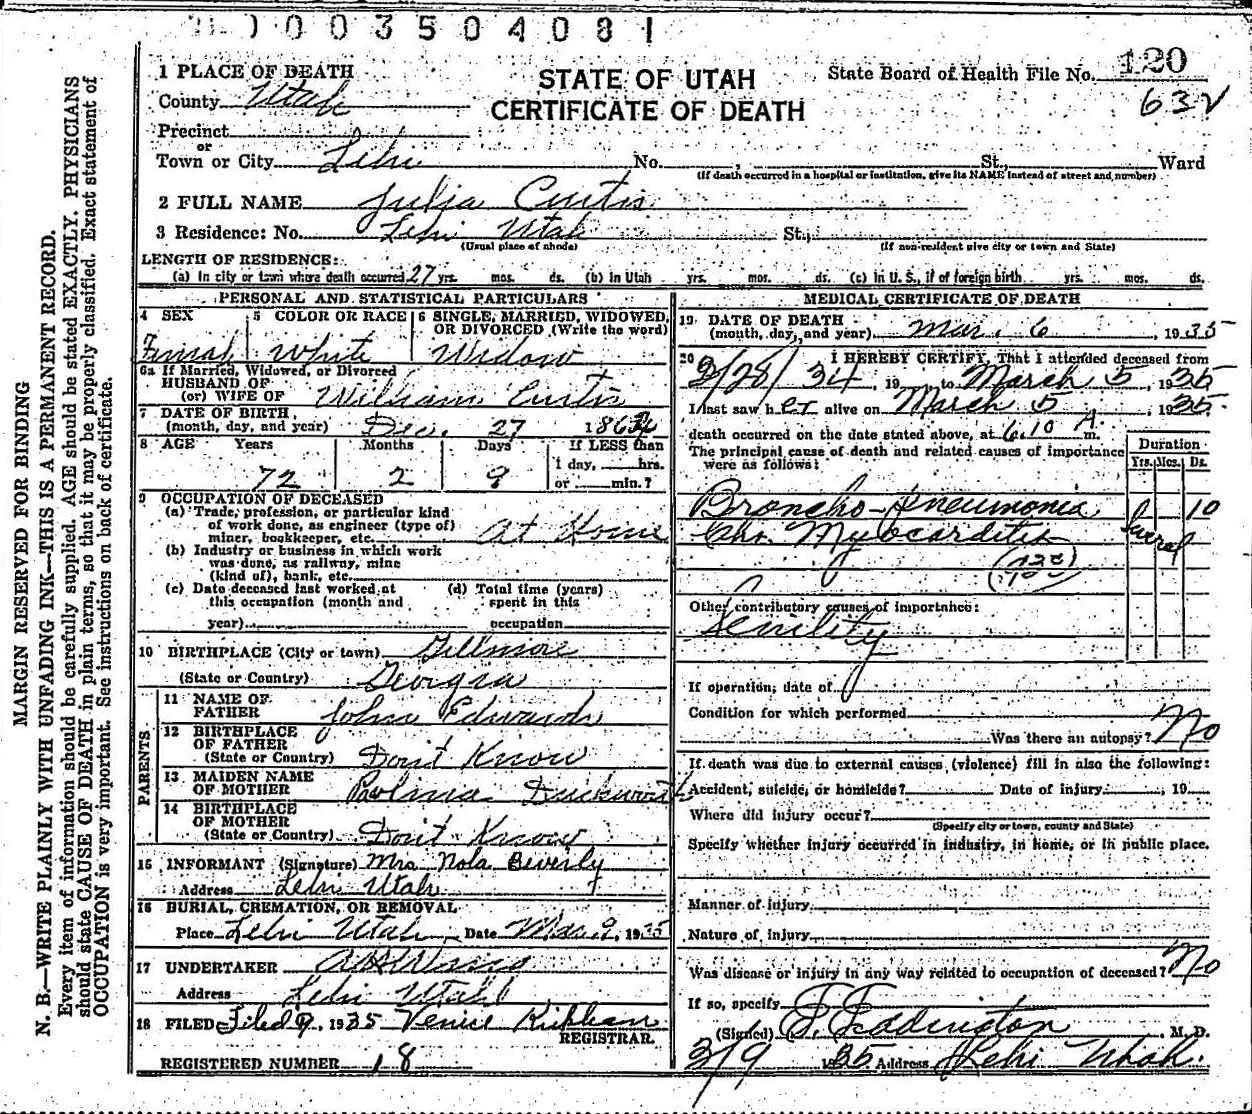 1 0 0 3 5 0 4 0 8 1
1 PLACE OF DEATH
STATE OF UTAH
CERTIFICATE OF DEATH
State Board of Health File No. 120
County Utah
63
Precinct
or
Town or City Lehi No. , St., Ward
(If death occurred in a hospital or institution, give its NAME instead of street and number)
2 FULL NAME Julia Curtis
3 Residence: No. Lehi Utah St.,
(Usual place of abode) (If non-resident give city or town and State)
LENGTH OF RESIDENCE:
(a) In city or town where death occurred 27 yrs. mos. ds. (b) in Utah yrs. mos. ds. (c) in U. S., if of foreign birth yrs. mos. ds.
PERSONAL AND STATISTICAL PARTICULARS
4 SEX 5 COLOR OR RACE 6 SINGLE, MARRIED, WIDOWED, OR DIVORCED (Write the word)
Femal White Widow
6a If Married, Widowed, or Divorced
HUSBAND OF
(or) WIFE OF William Curtis
7 DATE OF BIRTH
(month, day, and year) Dec. 27 186
8 AGE Years Months Days If LESS than
1 day, hrs.
72 2 9 or min.?
9 OCCUPATION OF DECEASED
(a) Trade, profession, or particular kind
of work done, as engineer (type of)
miner, bookkeeper, etc. At Home
(b) Industry or business in which work
was done, as railway, mine
(kind of), bank, etc.
(c) Date deceased last worked at (d) Total time (years)
this occupation (month and spent in this
year) occupation
10 BIRTHPLACE (City or town) Gillmore
(State or Country) Georgia
PARENTS
11 NAME OF
FATHER John Edwards
12 BIRTHPLACE
OF FATHER
(State or Country) Don't Know
13 MAIDEN NAME
OF MOTHER Paulina Duckworth
14 BIRTHPLACE
OF MOTHER
(State or Country) Don't Know
15 INFORMANT (Signature) Mrs Nola Beverly
Address Lehi Utah
16 BURIAL, CREMATION, OR REMOVAL
Place Lehi Utah Date Mar. 9, 1935
17 UNDERTAKER
Address Lehi Utah
18 FILED 9, 1935 Venice
REGISTRAR.
REGISTERED NUMBER 18
MEDICAL CERTIFICATE OF DEATH
19 DATE OF DEATH
(month, day, and year) Mar. 6 1935
20 I HEREBY CERTIFY, That I attended deceased from
2/28/34, 19 , to March 5, 1935
I last saw her alive on March 5 1935.
death occurred on the date stated above, at 6.10 A. m.
The principal cause of death and related causes of importance
were as follows:
Duration
Yrs. Mos. Ds.
Broncho-Pneumonia 10
Chr. Myocarditis Several
Other contributory causes of importance:
Senility
If operation, date of
Condition for which performed
Was there an autopsy? No
If death was due to external causes, (violence) fill in also the following:
Accident, suicide, or homicide? Date of injury , 19
Where did injury occur?
(Specify city or town, county and State)
Specify whether injury occurred in industry, in home, or in public place.
Manner of injury
Nature of injury
Was disease or injury in any way related to occupation of deceased? No
If so, specify
(Signed) Eddington, M. D.
3/9 1935 Address Lehi Utah.
MARGIN RESERVED FOR BINDING
N. B.—WRITE PLAINLY WITH UNFADING INK—THIS IS A PERMANENT RECORD.
Every item of information should be carefully supplied. AGE should be stated EXACTLY. PHYSICIANS
should state CAUSE OF DEATH in plain terms, so that it may be properly classified. Exact statement of
OCCUPATION is very important. See instructions on back of certificate.